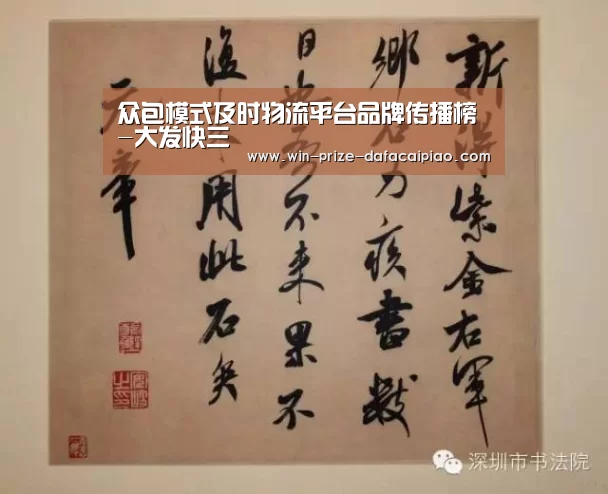 众包模式及时物流平台品牌传播榜
-大发快三
www.win-prize-dafacaipiao.com
新得紫金右軍
鄉石力疾書數
日也吾不来果不
復用此石矣
元章
深圳市书法院